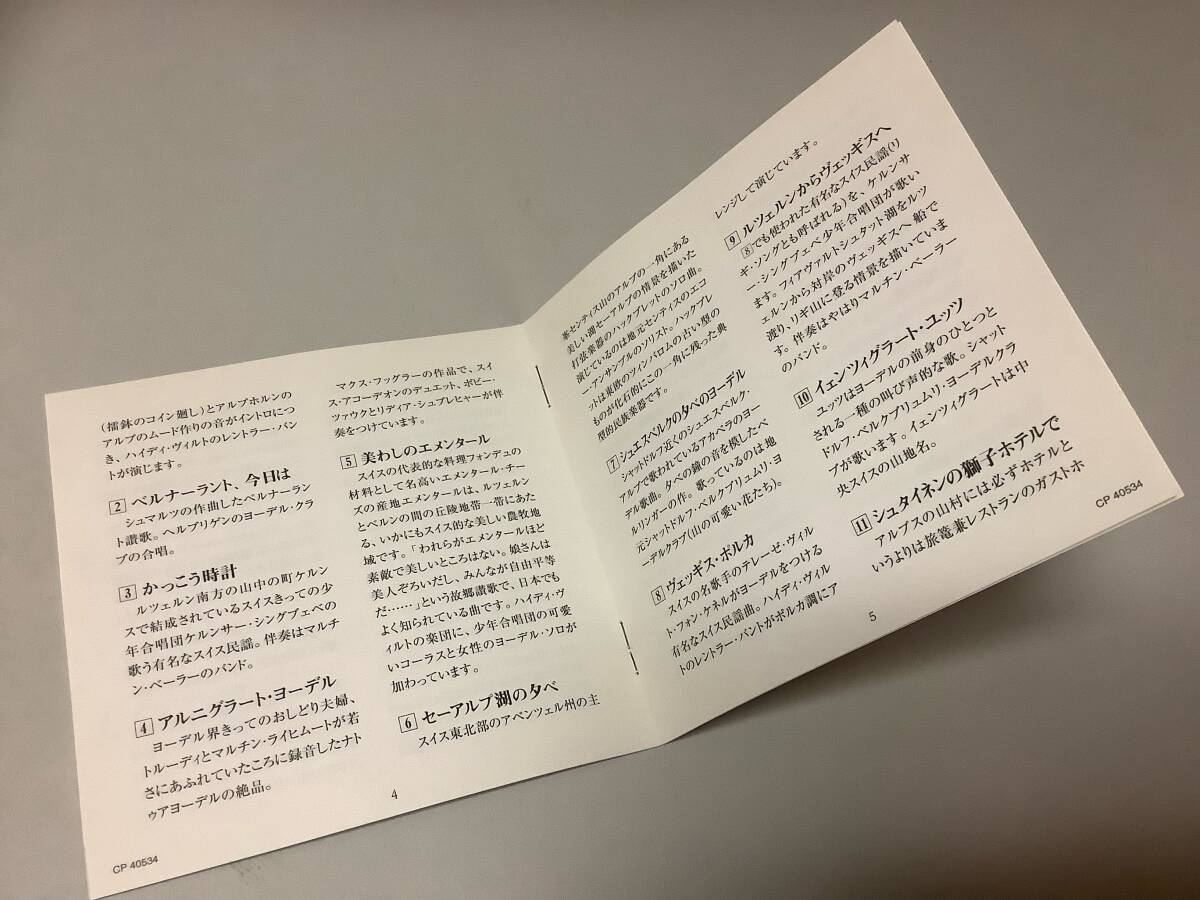 (擂鉢のコイン廻し)とアルプホルンの
アルプのムード作りの音がイントロにつ
き、ハイディ・ヴィルトのレントラー・バン
トが演じます。
2 ベルナーラント、今日は
シュマルツの作曲したベルナーラン
ト讃歌。ヘルブリゲンのヨーデル・クラ
ブの合唱。
3 かっこう時計
ルツェルン南方の山中の町ケルン
スで結成されているスイスきっての少
年合唱団ケルンサー・シングブェベの
歌う有名なスイス民謡。伴奏はマルチ
ン・ベーラーのバンド。
4 アルニグラート・ヨーデル
ヨーデル界きってのおしどり夫婦、
トルーディとマルチン・ライヒムートが若
さにあふれていたころに録音したナト
ゥアヨーデルの絶品。
マクス・フッグラーの作品で、スイ
ス・アコーデオンのデュエット、ボビー・
ツァウクとリディア・シュプレヒャーが伴
奏をつけています。
5 美わしのエメンタール
スイスの代表的な料理フォンデュの
材料として名高いエメンタール・チー
ズの産地エメンタールは、ルツェルン
とベルンの間の丘陵地帯一帯にあた
る、いかにもスイス的な美しい農牧地
域です。「われらがエメンタールほど
素敵で美しいところはない。娘さんは
美人ぞろいだし、みんなが自由平等
だ……」という故郷讃歌で、日本でも
よく知られている曲です。ハイディ・ヴ
ィルトの楽団に、少年合唱団の可愛
いコーラスと女性のヨーデル・ソロが
加わっています。
6 セーアルプ湖の夕べ
スイス東北部のアペンツェル州の主
4
CP 40534
峯センティス山のアルプの一角にある
美しい湖セーアルプの情景を描いた
打弦楽器のハックブレットのソロ曲。
演じているのは地元センティスのエコ
ー・アンサンブルのソリスト。ハックブレ
ットは東欧のツィンバロムの古い型の
ものが化石的にこの一角に残った典
型的民族楽器です。
7 シュエスベルクの夕べのヨーデル
シャッドルフ近くのシュエスベルク・
アルプで歌われているアカペラのヨー
デル歌曲。夕べの鐘の音を模したベ
ルリンガーの作。歌っているのは地
元シャッドルフ・ベルクブリュムリ・ヨ
ーデルクラブ(山の可愛い花たち)。
8 ヴェッギス・ポルカ
スイスの名歌手のテレーゼ・ヴィル
ト・フォン・ケネルがヨーデルをつける
有名なスイス民謡曲。ハイディ・ヴィル
トのレントラー・バントがポルカ調にア
レンジして演じています。
9 ルツェルンからヴェッギスへ
8でも使われた有名なスイス民謡(リ
ギ・ソングとも呼ばれる)を、ケルンサ
ー・シングブェベ少年合唱団が歌い
ます。フィアヴァルトシュタット湖をルツ
ェルンから対岸のヴェッギスへ 船で
渡り、リギ山に登る情景を描いていま
す。伴奏はやはりマルチン・ベーラー
のバンド。
10 イェンツィグラート・ユッツ
ユッツはヨーデルの前身のひとつと
される一種の叫び声的な歌。シャット
ドルフ・ベルクブリュムリ・ヨーデルクラ
ブが歌います。イェンツィグラートは中
央スイスの山地名。
11 シュタイネンの獅子ホテルで
アルプスの山村には必ずホテルと
いうよりは旅篭兼レストランのガストホ
5
CP 40534